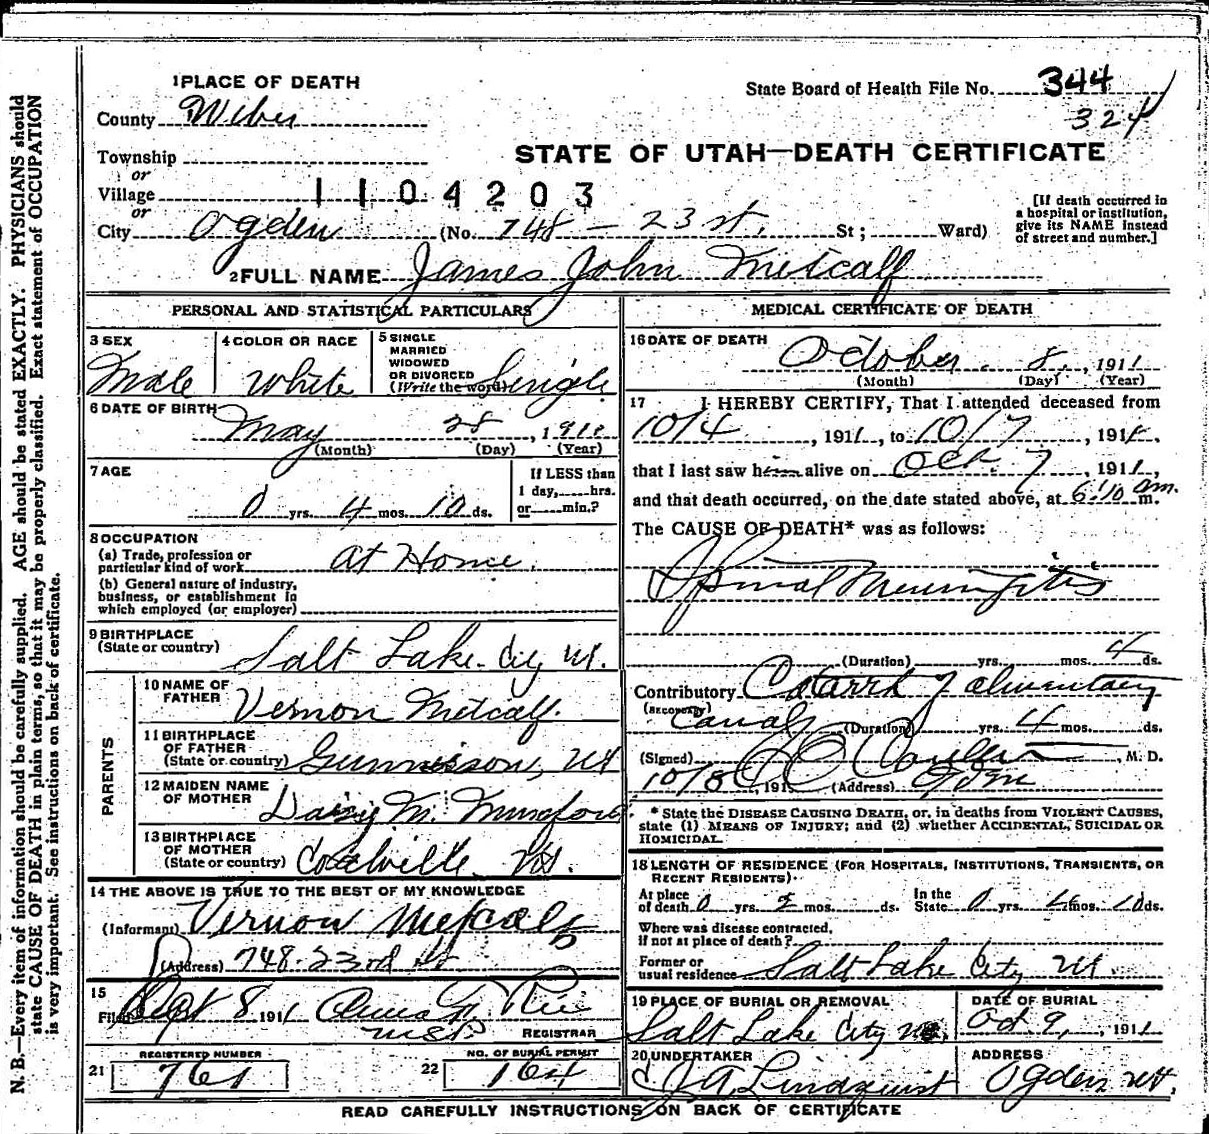 1 PLACE OF DEATH
State Board of Health File No. 344
County Weber
324
STATE OF UTAH—DEATH CERTIFICATE
Township
or
Village 1104203
or
City Ogden (No. 748 – 23 st. St; Ward)
[If death occurred in a hospital or institution, give its NAME instead of street and number.]
2 FULL NAME James John Metcalf
PERSONAL AND STATISTICAL PARTICULARS
3 SEX
Male
4 COLOR OR RACE
White
5 SINGLE
MARRIED
WIDOWED
OR DIVORCED
(Write the word) Single
6 DATE OF BIRTH
May 28, 1911
(Month) (Day) (Year)
7 AGE
0 yrs. 4 mos. 10 ds.
If LESS than
1 day, hrs.
or min.?
8 OCCUPATION
(a) Trade, profession or
particular kind of work At Home.
(b) General nature of industry,
business, or establishment in
which employed (or employer)
9 BIRTHPLACE
(State or country) Salt Lake City Ut.
PARENTS
10 NAME OF
FATHER Vernon Metcalf.
11 BIRTHPLACE
OF FATHER
(State or country) Gunnisson, Ut
12 MAIDEN NAME
OF MOTHER Daisy M. Mumford
13 BIRTHPLACE
OF MOTHER
(State or country) Coalville Ut.
14 THE ABOVE IS TRUE TO THE BEST OF MY KNOWLEDGE
(Informant) Vernon Metcalf
(Address) 748-23rd St
15
Filed Oct 8 1911
REGISTRAR
21 REGISTERED NUMBER
761
22 NO. OF BURIAL PERMIT
164
MEDICAL CERTIFICATE OF DEATH
16 DATE OF DEATH
October 8, 1911
(Month) (Day) (Year)
17 I HEREBY CERTIFY, That I attended deceased from
10/4, 1911, to 10/7, 1911,
that I last saw him alive on Oct. 7, 1911,
and that death occurred, on the date stated above, at 6:10 am.
The CAUSE OF DEATH* was as follows:
Spinal Meningitis
(Duration) yrs. mos. 4 ds.
Contributory Catarrh of alimentary
(SECONDARY) Canal (Duration) yrs. 4 mos. ds.
(Signed) M. D.
10/8, 191 (Address) Ogden
* State the DISEASE CAUSING DEATH, or, in deaths from VIOLENT CAUSES,
state (1) MEANS OF INJURY; and (2) whether ACCIDENTAL, SUICIDAL OR
HOMICIDAL.
18 LENGTH OF RESIDENCE (FOR HOSPITALS, INSTITUTIONS, TRANSIENTS, OR
RECENT RESIDENTS).
At place
of death 0 yrs. 2 mos. ds. In the State 0 yrs. 4 mos. 10 ds.
Where was disease contracted,
if not at place of death?
Former or
usual residence Salt Lake City Ut.
19 PLACE OF BURIAL OR REMOVAL
Salt Lake City Ut.
DATE OF BURIAL
Oct 9, 1911
20 UNDERTAKER
J A Lindquist
ADDRESS
Ogden Ut.
READ CAREFULLY INSTRUCTIONS ON BACK OF CERTIFICATE
N. B.—Every item of information should be carefully supplied. AGE should be stated EXACTLY. PHYSICIANS should
state CAUSE OF DEATH in plain terms, so that it may be properly classified. Exact statement of OCCUPATION
is very important. See instructions on back of certificate.